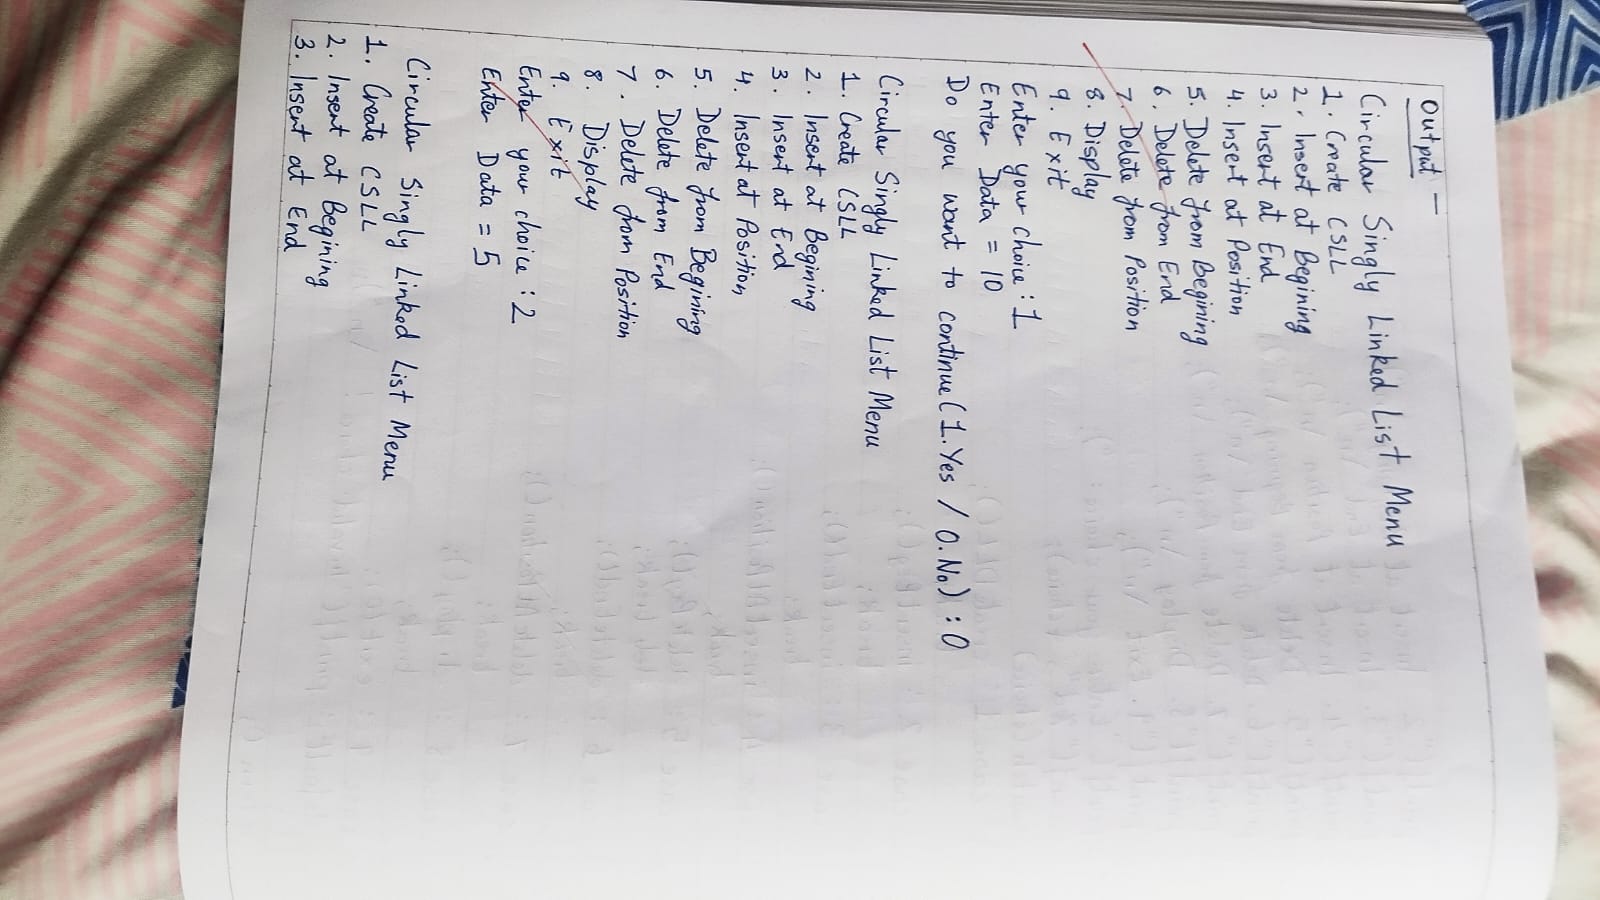 Output -
Circular Singly Linked List Menu
1. Create CSLL
2. Insert at Begining
3. Insert at End
4. Insert at Position
5. Delete from Begining
6. Delete from End
7. Delete from Position
8. Display
9. Exit
Enter your choice : 1
Enter Data = 10
Do you want to continue (1.Yes / 0.No) : 0
Circular Singly Linked List Menu
1. Create CSLL
2. Insert at Begining
3. Insert at End
4. Insert at Position
5. Delete from Begining
6. Delete from End
7. Delete from Position
8. Display
9. Exit
Enter your choice : 2
Enter Data = 5
Circular Singly Linked List Menu
1. Create CSLL
2. Insert at Begining
3. Insert at End